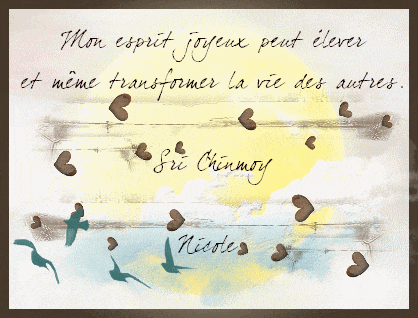 Mon esprit joyeux peut élever
et même transformer la vie des autres.
Sri Chinmoy
Nicole